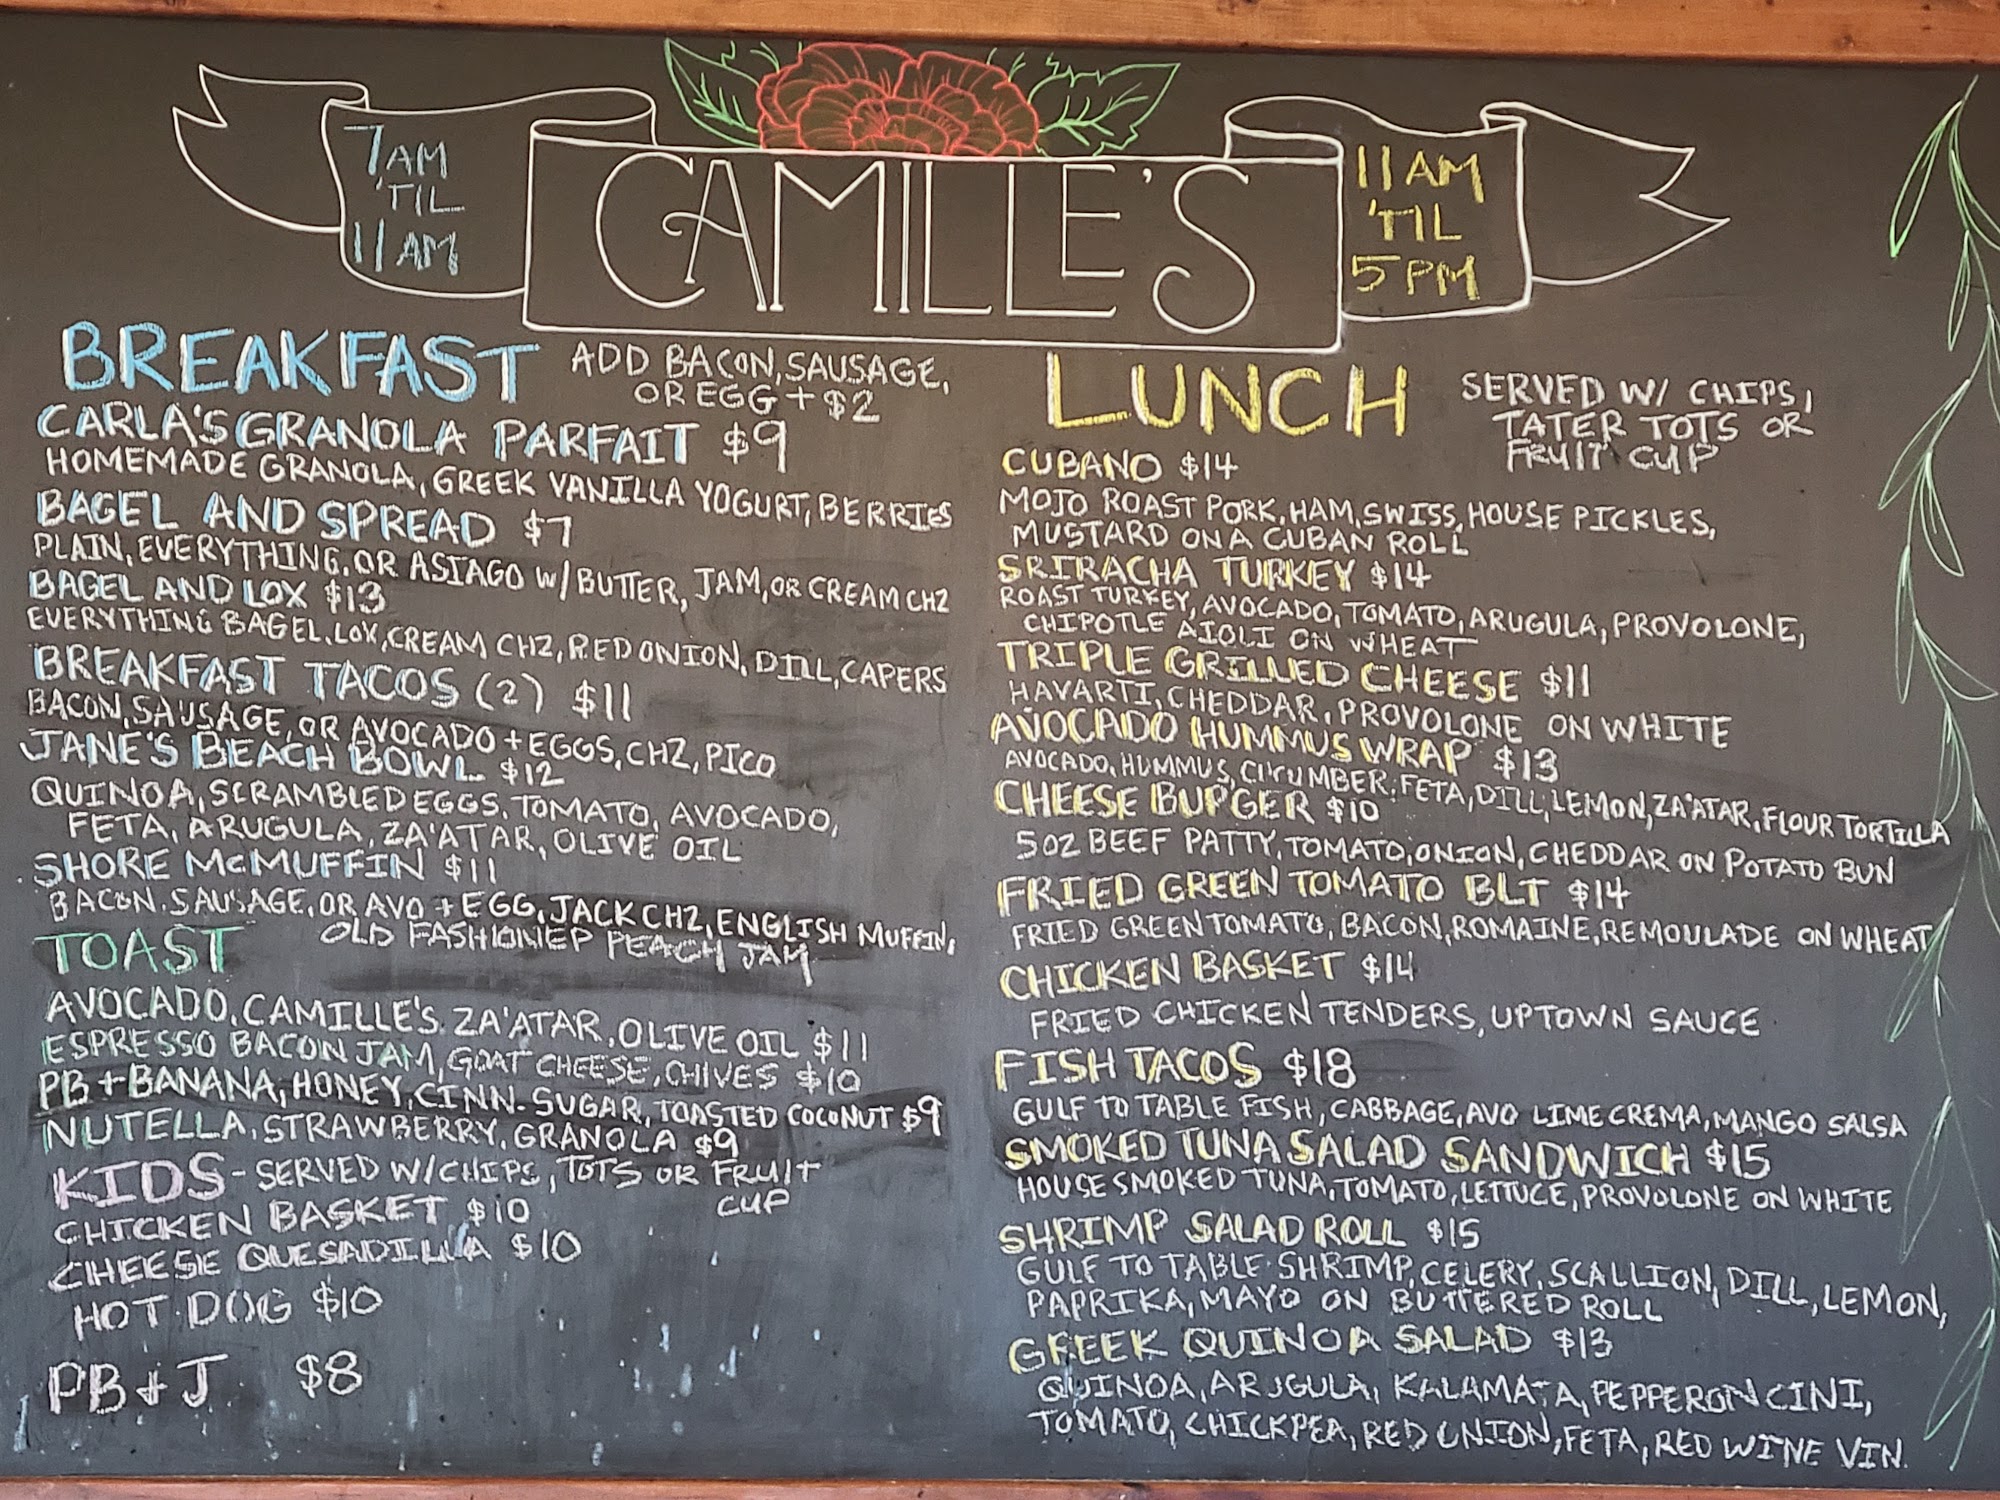 7AM
'TIL
11AM
CAMILLE'S
11AM
'TIL
5PM
BREAKFAST
ADD BACON, SAUSAGE,
OR EGG + $2
CARLA'S GRANOLA PARFAIT $9
HOMEMADE GRANOLA, GREEK VANILLA YOGURT, BERRIES
BAGEL AND SPREAD $7
PLAIN, EVERYTHING, OR ASIAGO W/ BUTTER, JAM, OR CREAM CHZ
BAGEL AND LOX $13
EVERYTHING BAGEL, LOX, CREAM CHZ, RED ONION, DILL, CAPERS
BREAKFAST TACOS (2) $11
BACON, SAUSAGE, OR AVOCADO + EGGS, CHZ, PICO
JANE'S BEACH BOWL $12
QUINOA, SCRAMBLED EGGS, TOMATO, AVOCADO,
FETA, ARUGULA, ZA'ATAR, OLIVE OIL
SHORE McMUFFIN $11
BACON, SAUSAGE, OR AVO + EGG, JACK CHZ, ENGLISH MUFFIN,
OLD FASHIONED PEACH JAM
TOAST
AVOCADO, CAMILLE'S ZA'ATAR, OLIVE OIL $11
ESPRESSO BACON JAM, GOAT CHEESE, CHIVES $10
PB + BANANA, HONEY, CINN. SUGAR, TOASTED COCONUT $9
NUTELLA, STRAWBERRY, GRANOLA $9
KIDS - SERVED W/ CHIPS, TOTS OR FRUIT
CUP
CHICKEN BASKET $10
CHEESE QUESADILLA $10
HOT DOG $10
PB + J $8
LUNCH
SERVED W/ CHIPS,
TATER TOTS OR
FRUIT CUP
CUBANO $14
MOJO ROAST PORK, HAM, SWISS, HOUSE PICKLES,
MUSTARD ON A CUBAN ROLL
SRIRACHA TURKEY $14
ROAST TURKEY, AVOCADO, TOMATO, ARUGULA, PROVOLONE,
CHIPOTLE AIOLI ON WHEAT
TRIPLE GRILLED CHEESE $11
HAVARTI, CHEDDAR, PROVOLONE ON WHITE
AVOCADO HUMMUS WRAP $13
AVOCADO, HUMMUS, CUCUMBER, FETA, DILL, LEMON, ZA'ATAR, FLOUR TORTILLA
CHEESE BURGER $10
5OZ BEEF PATTY, TOMATO, ONION, CHEDDAR ON POTATO BUN
FRIED GREEN TOMATO BLT $14
FRIED GREEN TOMATO, BACON, ROMAINE, REMOULADE ON WHEAT
CHICKEN BASKET $14
FRIED CHICKEN TENDERS, UPTOWN SAUCE
FISH TACOS $18
GULF TO TABLE FISH, CABBAGE, AVO LIME CREMA, MANGO SALSA
SMOKED TUNA SALAD SANDWICH $15
HOUSE SMOKED TUNA, TOMATO, LETTUCE, PROVOLONE ON WHITE
SHRIMP SALAD ROLL $15
GULF TO TABLE SHRIMP, CELERY, SCALLION, DILL, LEMON,
PAPRIKA, MAYO ON BUTTERED ROLL
GREEK QUINOA SALAD $13
QUINOA, ARUGULA, KALAMATA, PEPPERONCINI,
TOMATO, CHICKPEA, RED ONION, FETA, RED WINE VIN.